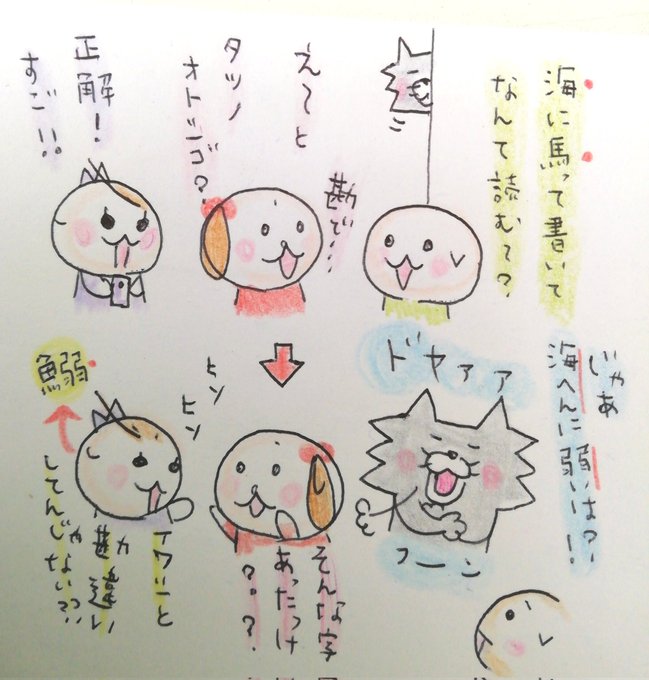 海に馬って書いて
なんて読むて?
え〜と
勘で…
タツノ
オトシゴ?
正解!
すご!!
じゃあ
海へんに弱いは?!
ドヤァァ
フーン
そんな字
あったっけ
??
ヒソ
ヒソ
イワシと
勘違い
してんじゃない?
鰯